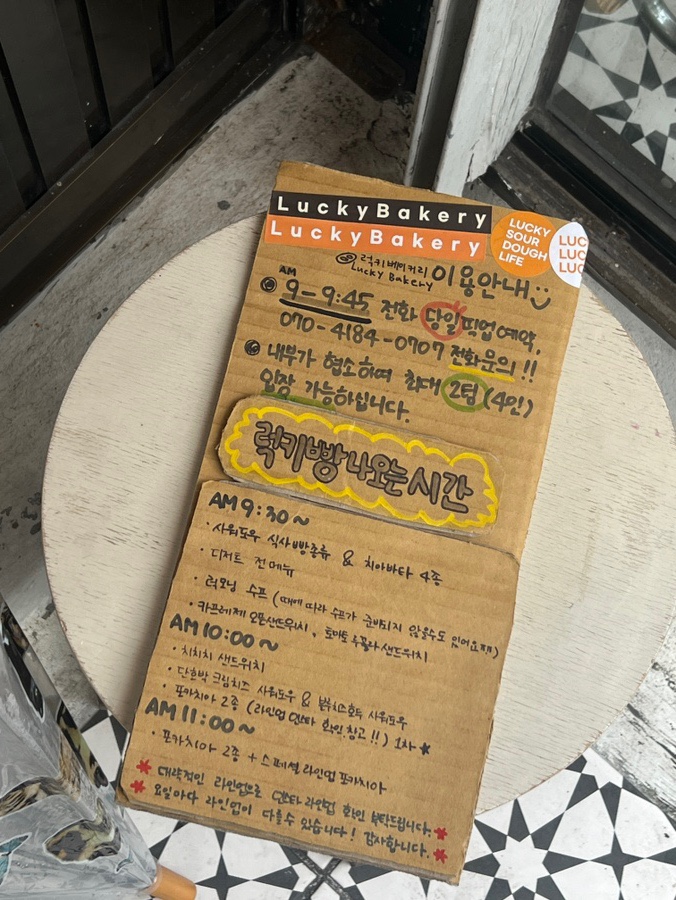 LuckyBakery
LuckyBakery
LUCKY
SOUR
DOUGH
LIFE
LUC
LUC
LUC
럭키베이커리
Lucky Bakery 이용안내
AM
9-9:45 전화 당일픽업예약,
070-4184-0707 전화문의!!
내부가 협소하여 최대 2팀(4인)
입장 가능하십니다.
럭키빵 나오는 시간
AM 9:30~
· 사워도우 식사빵종류 & 치아바타 4종
· 디저트 전메뉴
· 럭모닝 수프 (때에 따라 수프가 준비되지 않을수도 있어요)
· 카프레제 오픈샌드위치, 토마토 루꼴라 샌드위치
AM 10:00~
· 치치치 샌드위치
· 단호박 크림치즈 사워도우 & 사워도우
· 포카치아 2종 (라인업 인스타 확인.참고!!) 1차
AM 11:00~
· 포카치아 2종 + 스페셜라인업 포카치아
* 대략적인 라인업으로 인스타 라인업 확인 부탁드립니다. *
* 요일마다 라인업이 다를수 있습니다! 감사합니다. *